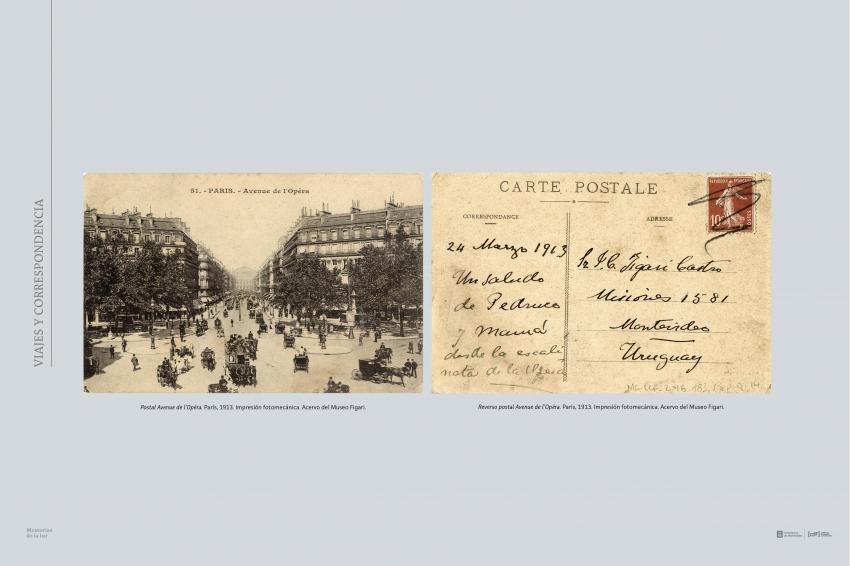 VIAJES Y CORRESPONDENCIA
51. - PARIS. - Avenue de l'Opéra
CARTE POSTALE
CORRESPONDANCE
ADRESSE
24 Marzo 1913
Un saludo
de Pedruco
y Mamá
desde la escali
nata de la Opera
Sr. J. C. Figari Castro
Misiones 1581
Montevideo
Uruguay
10
Postal Avenue de l'Opéra. París, 1913. Impresión fotomecánica. Acervo del Museo Figari.
Reverso postal Avenue de l'Opéra. París, 1913. Impresión fotomecánica. Acervo del Museo Figari.
Memorias
de la luz